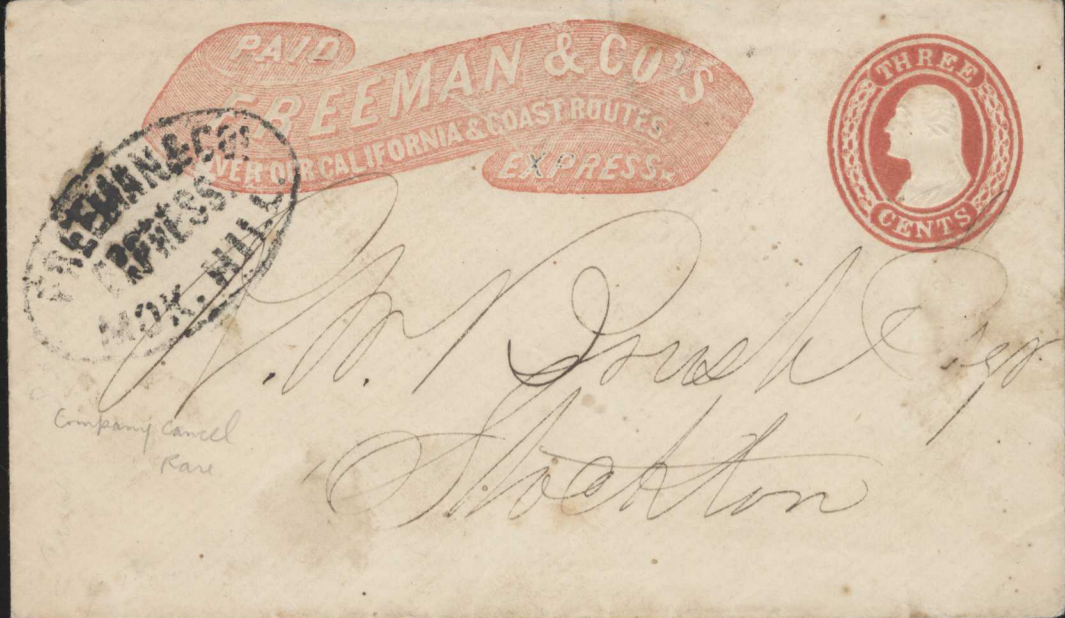 PAID
FREEMAN & CO'S
OVER OUR CALIFORNIA & COAST ROUTES
EXPRESS
THREE
CENTS
FREEMAN & CO'S
EXPRESS
MOK. HILL
Brush Esqr
Stockton
Company Cancel
Rare